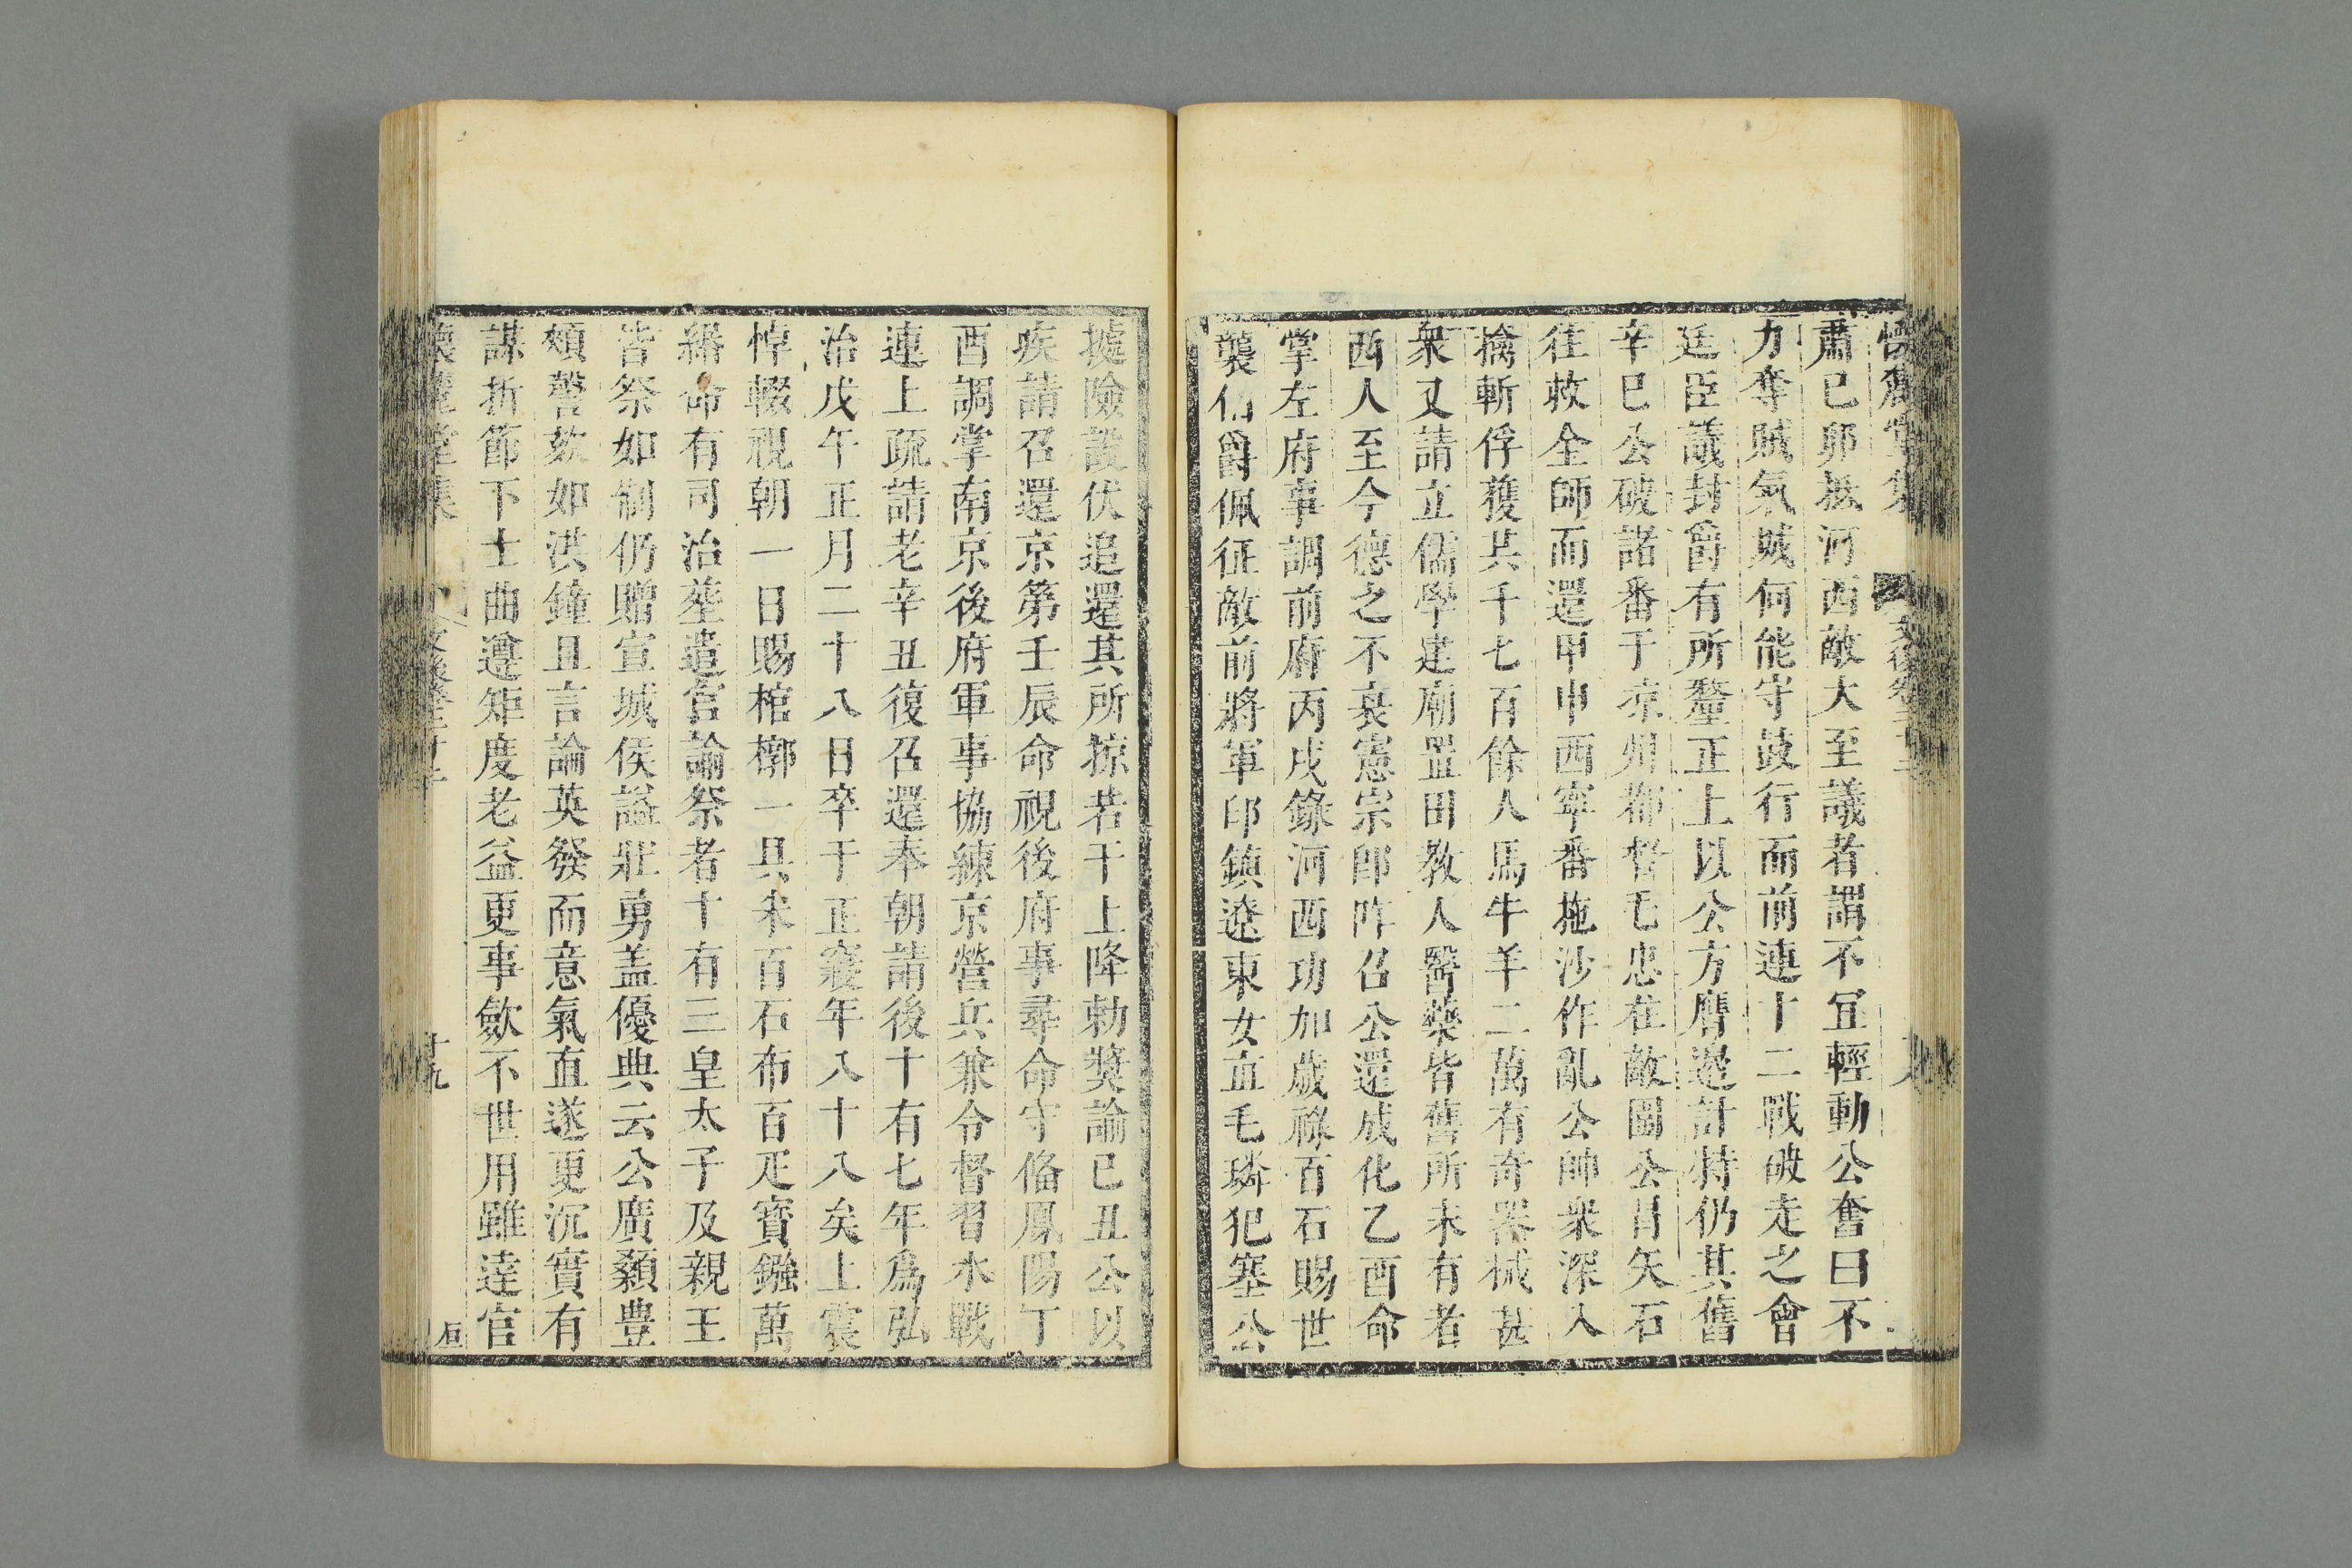 肅己卯抵河西敵大至議者謂不宜輕動公奮曰不
力奪賊氣城何能守鼓行而前連十二戰破走之會
廷臣議封爵有所釐正上以公方膺邊計特仍其舊
辛巳公破諸番于凉州都督毛忠在敵圍公冒矢石
往救全師而還甲申西寧番拖沙作亂公帥衆深入
擒斬俘獲其千七百餘人馬牛羊二萬有奇器械甚
衆又請立儒學建廟置田教人醫藥皆舊所未有者
西人至今德之不衰憲宗即昨召公還成化乙酉命
掌左府事調前府丙戌錄河西功加歲祿百石賜世
襲伯爵佩征敵前將軍印鎮遼東女直毛璘犯塞公
據險設伏追還其所掠若干上降勅奬諭已丑公以
疾請召還京第壬辰命視後府事尋命守俻鳳陽丁
酉調掌南京後府軍事協練京營兵兼令督習水戰
連上疏請老辛丑復召還奉朝請後十有七年爲弘
治戊午正月二十八日卒于正寢年八十八矣上震
悼輟視朝一日賜棺槨一具米百石布百疋寳鏹萬
緡命有司治塟遣官諭祭者十有三皇太子及親王
皆祭如制仍贈宣城侯謚壯勇盖優典云公廣顙豊
頰謦欬如洪鐘且言論英發而意氣直遂更沉實有
謀折節下士曲遵矩度老益更事歛不世用雖逹官
懷麓堂集
十九